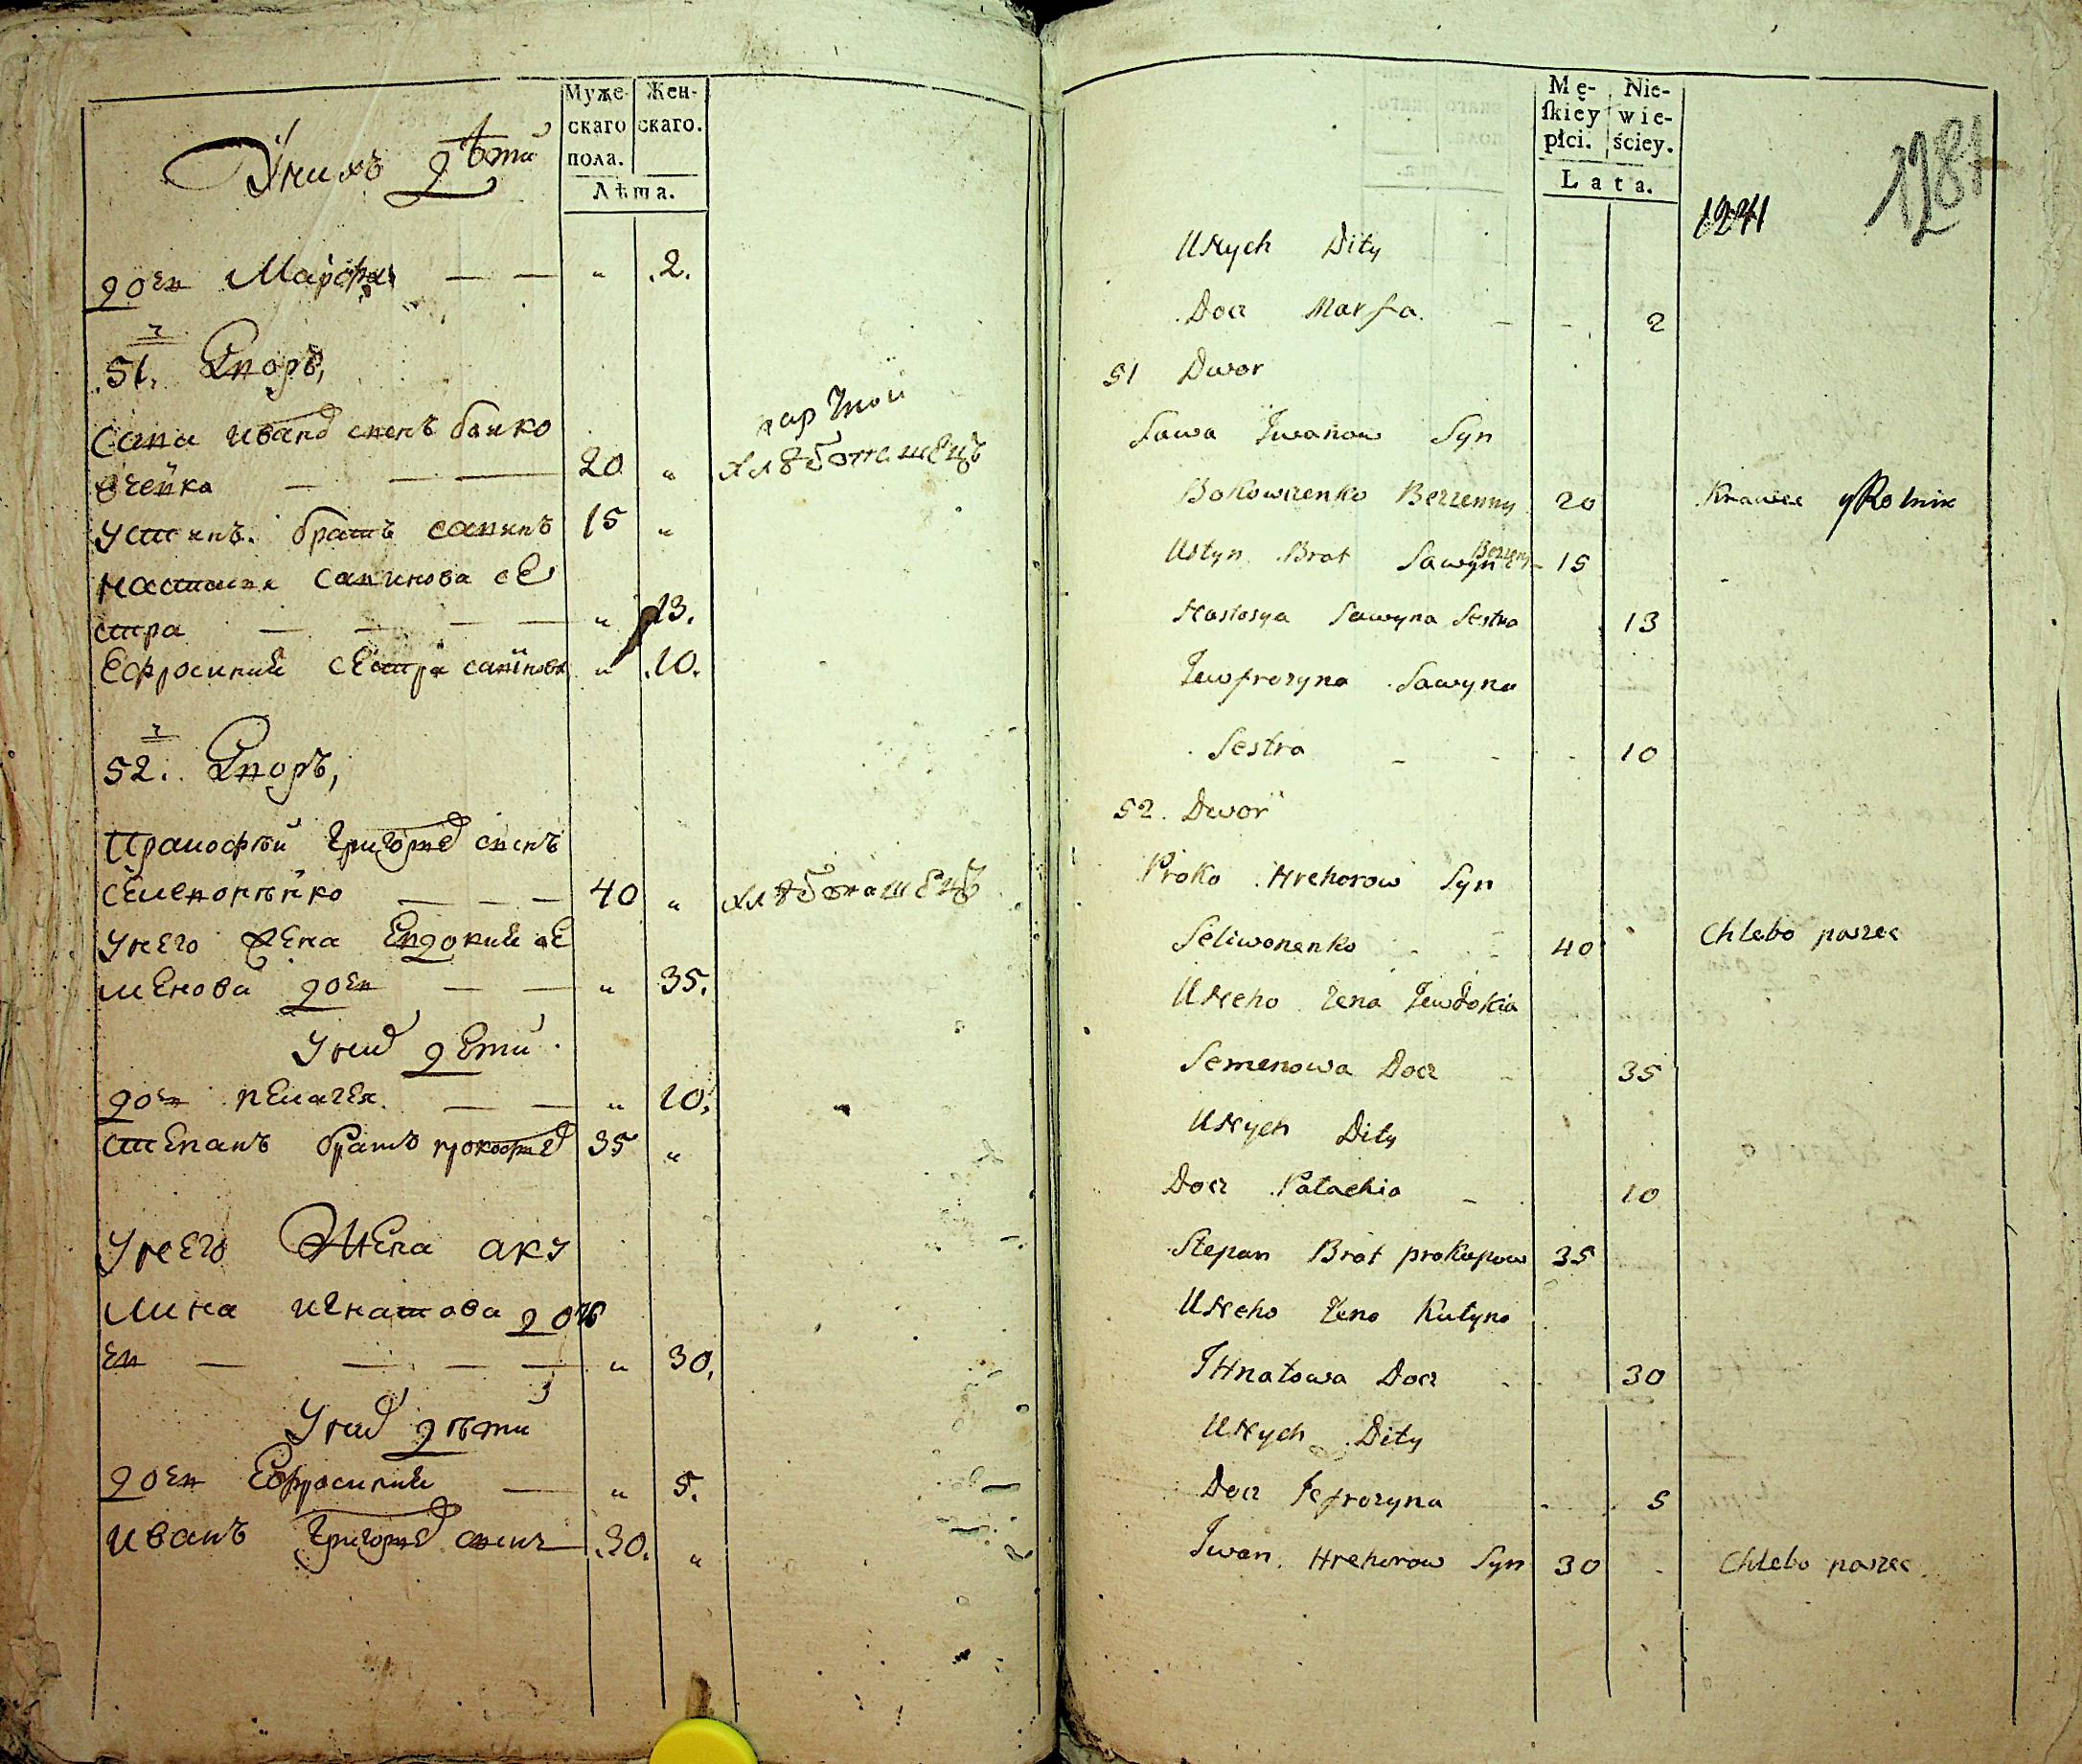 Муже-
скаго
пола.
Жен-
скаго.
Лѣта.
У нихъ дѣти
дочь Марфа — — " 2.
51. Дворъ,
Сава Иванов сынъ бокко
вченко — — — 20 "
хлѣбопашецъ
Устинъ братъ савинъ 15 "
Настасия савинова се
стра — — — — " 13.
Ефросиния сестра савинова " 10.
52. Дворъ,
Григорев сынъ
40 "
хлѣбопашецъ
У него жена Евдокия се
менова дочь — — " 35.
У них дети
дочь пелагея — — " 10.
Степанъ братъ прокофев 35 "
У него Жена аку
лина игнатова доч
— — — — " 30.
У них дѣти
дочь Ефросиния — " 5.
иванъ Григорев сынъ 30. "
Mę-
skiey
płci.
Nie-
wie-
ściey.
Lata.
1281
U Nych Dity
Docz Marfa. — — 2
51 Dwor
Sawa Iwanow Syn
Bokowczenko Bezzenny 20
Krawec y Rolnik
Ustyn Brat Sawyn Bezzeny 15
Nastosya Sawyna Sestra 13
Jewfrozyna Sawyna
Sestra - - - 10
52. Dwor
Proko Hrehorow Syn
Seliwonenko - - 40
Chlebo paszec
U Neho Zena Jewdokia
Semenowa Docz - 35
U Nych Dity
Docz Palachia - 10
Stepan Brat prokopow 35
U Neho Zena Kulyna
IHnatowa Docz - 30
U Nych Dity
Docz Jefrozyna - 5
Iwan Hrehorow Syn 30 -
Chlebo paszec